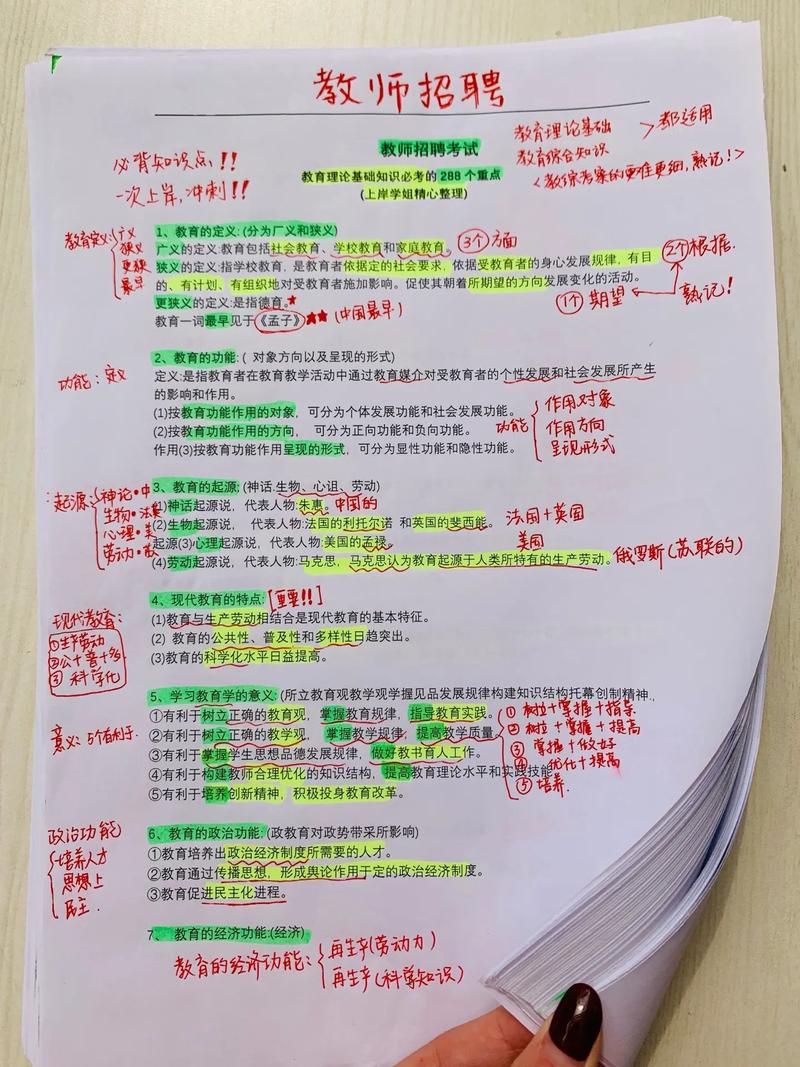 教师招聘
教育理论基础
教育综合知识
>都适用
<教综考察的更难更细,熟记!>
必背知识点!!
一次上岸,冲刺!!
教师招聘考试
教育理论基础知识必考的 288 个重点
(上岸学姐精心整理)
教育定义:
广义
狭义
更狭
最早
1、教育的定义:(分为广义和狭义)
广义的定义:教育包括社会教育、学校教育和家庭教育。
3个方面
狭义的定义:指学校教育,是教育者依据定的社会要求,依据受教育者的身心发展规律,有目
的、有计划、有组织地对受教育者施加影响。促使其朝着所期望的方向发展变化的活动。
2个根据.
1个期望
熟记!
更狭义的定义:是指德育。★
教育一词最早见于《孟子》★★(中国最早)
功能:定义
2、教育的功能:( 对象方向以及呈现的形式)
定义:是指教育者在教育教学活动中通过教育媒介对受教育者的个性发展和社会发展所产生
的影响和作用。
(1)按教育功能作用的对象,可分为个体发展功能和社会发展功能。
(2)按教育功能作用的方向, 可分为正向功能和负向功能。
作用(3)按教育功能作用呈现的形式,可分为显性功能和隐性功能。
功能
作用对象
作用方向
呈现形式
起源:
神论·中
生物·法英
心理·美
劳动·
3、教育的起源:(神话.生物、心诅、劳动)
(1)神话起源说,代表人物:朱惠。中国的
(2)生物起源说, 代表人物:法国的利托尔诺 和英国的斐西能。
法国+英国
起源(3)心理起源说,代表人物:美国的孟禄.
美国
(4)劳动起源说,代表人物:马克思,马克思认为教育起源于人类所特有的生产劳动。俄罗斯(苏联的)
现代教育:
①生产劳动
②公+普+多
③ 科学化
4、现代教育的特点:[重要!!]
(1)教育与生产劳动相结合是现代教育的基本特征。
(2) 教育的公共性、普及性和多样性日趋突出。
(3)教育的科学化水平日益提高。
意义:5个有利于.
5、学习教育学的意义:(所立教育观教学观学握见品发展规律构建知识结构托幕创制精神.,
①有利于树立正确的教育观, 掌握教育规律,指导教育实践。
②有利于树立正确的教学观, 掌握教学规律,提高教学质量
③有利于掌握学生思想品德发展规律,做好教书育人工作。
④有利于构建教师合理优化的知识结构,提高教育理论水平和实践技能
⑤有利于培养创新精神,积极投身教育改革。
① 树拉+掌握+指导
② 树拉+掌握+提高
③ 掌握+做好
④ 优化+提高
⑤培养.
政治功能
培养人才
思想上
民主.
6、教育的政治功能:(政教育对政势带采所影响)
①教育培养出政治经济制度所需要的人才。
②教育通过传播思想,形成舆论作用于定的政治经济制度。
③教育促进民主化进程。
7、 教育的经济功能:(经济)
教育的经济功能:
再生产(劳动力)
再生产(科学知识)